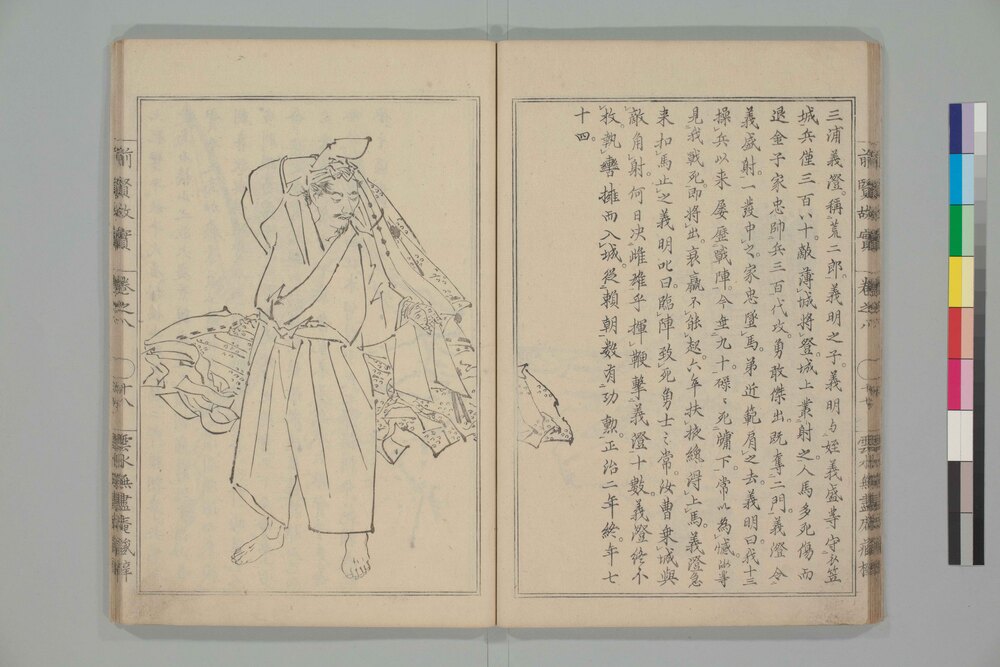 三浦義澄。稱荒二郎。義明之子。義明与姪義盛等守衣笠
城。兵僅三百八十。敵薄城將登。城上叢射之。人馬多死傷而
退。金子家忠帥兵三百代攻。勇敢傑出既奪二門。義澄令
義盛射。一發中之。家忠墜馬。弟近範肩之去。義明曰。我十三
操兵以来屡歴戰陣。今垂九十。碌々死牖下。常以為憾。
見我戰死。即將出。衰羸不能起。六年扶掖纔得上馬。義澄急
来扣馬止之。義明叱曰。臨陣致死勇士之常。汝曹乗城與
敵角射。何日决雌雄乎。揮鞭撃義澄十數。義澄終不
放。執轡擁而入城。後頼朝數有功勲。正治二年終。年七
十四。
前賢故實 卷之八
前賢故實 卷之八 十八